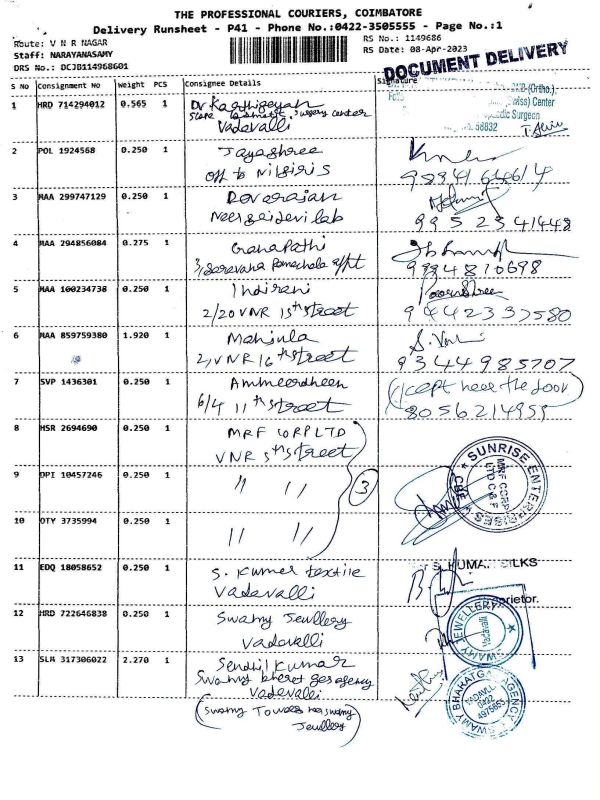 THE PROFESSIONAL COURIERS, COIMBATORE
Delivery Runsheet - P41 - Phone No.:0422-3505555 - Page No.:1
Route: V N R NAGAR
RS No.: 1149686
Staff: NARAYANASAMY
RS Date: 08-Apr-2023
DRS No.: DCJB114968601
DOCUMENT DELIVERY
S No Consignment No Weight PCS Consignee Details Signature
1 HRD 714294012 0.565 1 Dr Karthigeyan
surgery center
Vadavalli
(Ortho.)
Center
Surgeon
58832
2 POL 1924568 0.250 1 Jayashree
off to Nilgiris
3 MAA 299747129 0.250 1 Devarajan
lab
99523 41448
4 MAA 294856084 0.275 1 Ganapathi
3, Saravana
99948 10698
5 MAA 100234738 0.250 1 Indirani
2/20 VNR 15th street
94423 37580
6 MAA 859759380 1.920 1 Manjula
2, VNR 16th street
93449 85707
7 SVP 1436301 0.250 1 Ammeerdheen
6/4 11th street
(kept near the door)
8056214955
8 HSR 2694690 0.250 1 MRF CORP LTD
VNR 5th street
9 DPI 10457246 0.250 1 " "
3
10 OTY 3735994 0.250 1 " "
SUNRISE ENTERPRISES
MRF CORP
LTD C & F
CBE
11 EDQ 18058652 0.250 1 S. Kumar textile
Vadavalli
S. KUMAR SILKS
Proprietor.
12 HRD 722646838 0.250 1 Swamy Jewllery
Vadavalli
SWAMY JEWELLERY
Vadavalli
13 SLM 317306022 2.270 1 Sendhil Kumar
Swamy bharat gas agency
Vadavalli
(Swamy Towers near swamy
Jewllery)
SWAMY BHARATGAS AGENCY
VADAVALLI
0422